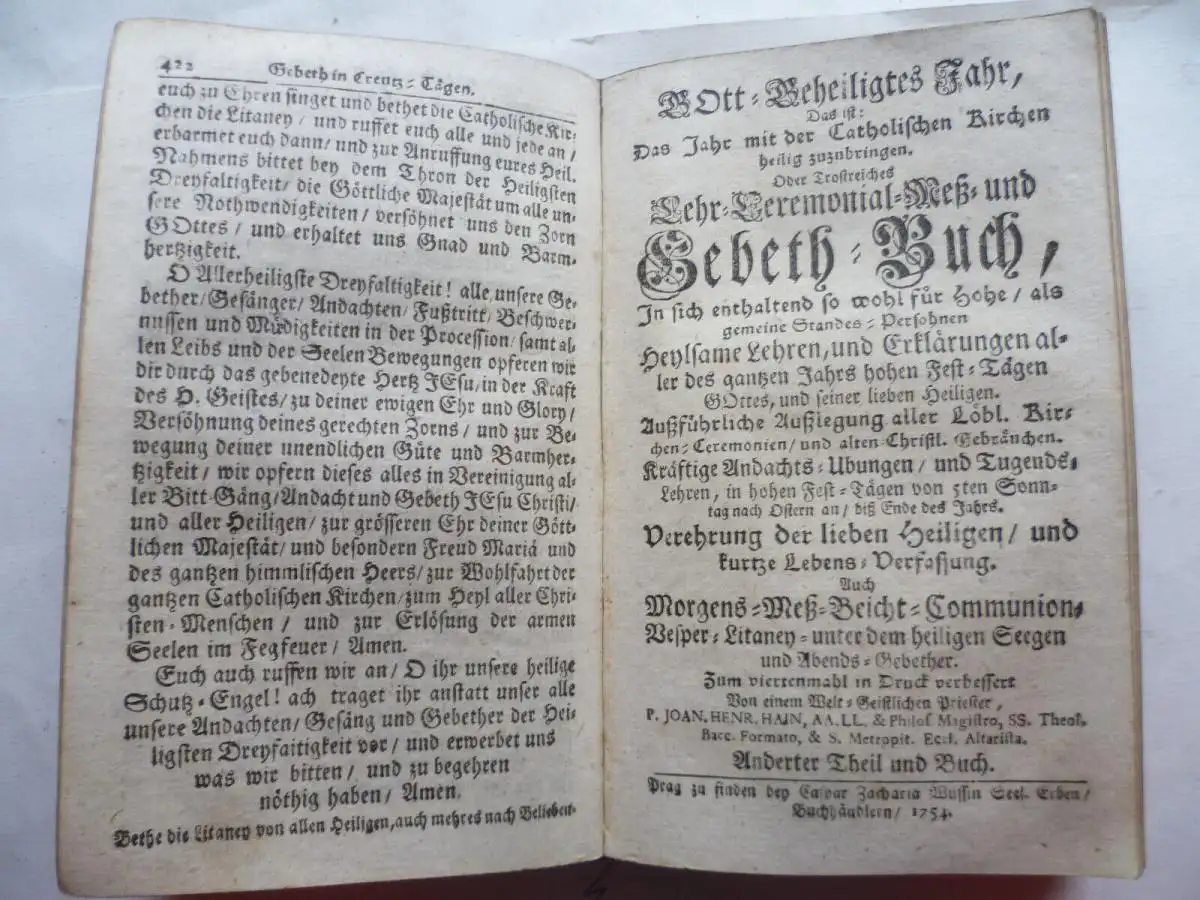 422 Gebeth in Creutz-Tägen.
euch zu Ehren singet und bethet die Catholische Kir-
chen die Litaney / und ruffet euch alle und jede an /
erbarmet euch dann / und zur Anruffung eures Heil.
Nahmens bittet bey dem Thron der Heiligsten
Dreyfaltigkeit / die Göttliche Majestät um alle un-
sere Nothwendigkeiten / versöhnet uns den Zorn
GOttes / und erhaltet uns Gnad und Barm-
hertzigkeit.
O Allerheiligste Dreyfaltigkeit! alle unsere Ge-
bether / Gesänger / Andachten / Fußtritt / Beschwer-
nussen und Müdigkeiten in der Procession / samt al-
len Leibs und der Seelen Bewegungen opferen wir
dir durch das gebenedeyte Hertz JEsu / in der Kraft
des H. Geistes / zu deiner ewigen Ehr und Glory /
Versöhnung deines gerechten Zorns / und zur Be-
wegung deiner unendlichen Güte und Barmher-
tzigkeit / wir opfern dieses alles in Vereinigung al-
ler Bitt-Gäng / Andacht und Gebeth JEsu Christi /
und aller Heiligen / zur grösseren Ehr deiner Gött-
lichen Majestät / und besondern Freud Mariä und
des gantzen himmlischen Heers / zur Wohlfahrt der
gantzen Catholischen Kirchen / zum Heyl aller Chri-
sten-Menschen / und zur Erlösung der armen
Seelen im Fegfeuer / Amen.
Euch auch ruffen wir an / O ihr unsere heilige
Schutz-Engel! ach traget ihr anstatt unser alle
unsere Andachten / Gesäng und Gebether der Hei-
ligsten Dreyfaltigkeit vor / und erwerbet uns
was wir bitten / und zu begehren
nöthig haben / Amen.
Bethe die Litaney von allen Heiligen, auch mehres nach Belieben.
GOtt-Geheiligtes Jahr,
Das ist:
Das Jahr mit der Catholischen Kirchen
heilig zuzubringen.
Oder Trostreiches
Lehr-Ceremonial-Meß- und
Gebeth-Buch,
In sich enthaltend so wohl für Hohe / als
gemeine Standes-Persohnen
Heylsame Lehren, und Erklärungen al-
ler des gantzen Jahrs hohen Fest-Tägen
GOttes, und seiner lieben Heiligen.
Außführliche Außlegung aller Löbl. Kir-
chen-Ceremonien / und alten Christl. Gebräuchen.
Kräftige Andachts-Ubungen / und Tugends-
Lehren, in hohen Fest-Tägen von 5ten Sonn-
tag nach Ostern an / biß Ende des Jahrs.
Verehrung der lieben Heiligen / und
kurtze Lebens-Verfassung.
Auch
Morgens-Meß-Beicht-Communion-
Vesper-Litaney-unter dem heiligen Seegen
und Abends-Gebether.
Zum viertenmahl in Druck verbessert
Von einem Welt-Geistlichen Priester,
P. JOAN. HENR. HAIN, AA. LL. & Philos. Magistro, SS. Theol.
Bacc. Formato, & S. Metropit. Eccl. Altarista.
Anderter Theil und Buch.
Prag zu finden bey Caspar Zacharia Wussin Seel. Erben /
Buchhändlern / 1754.